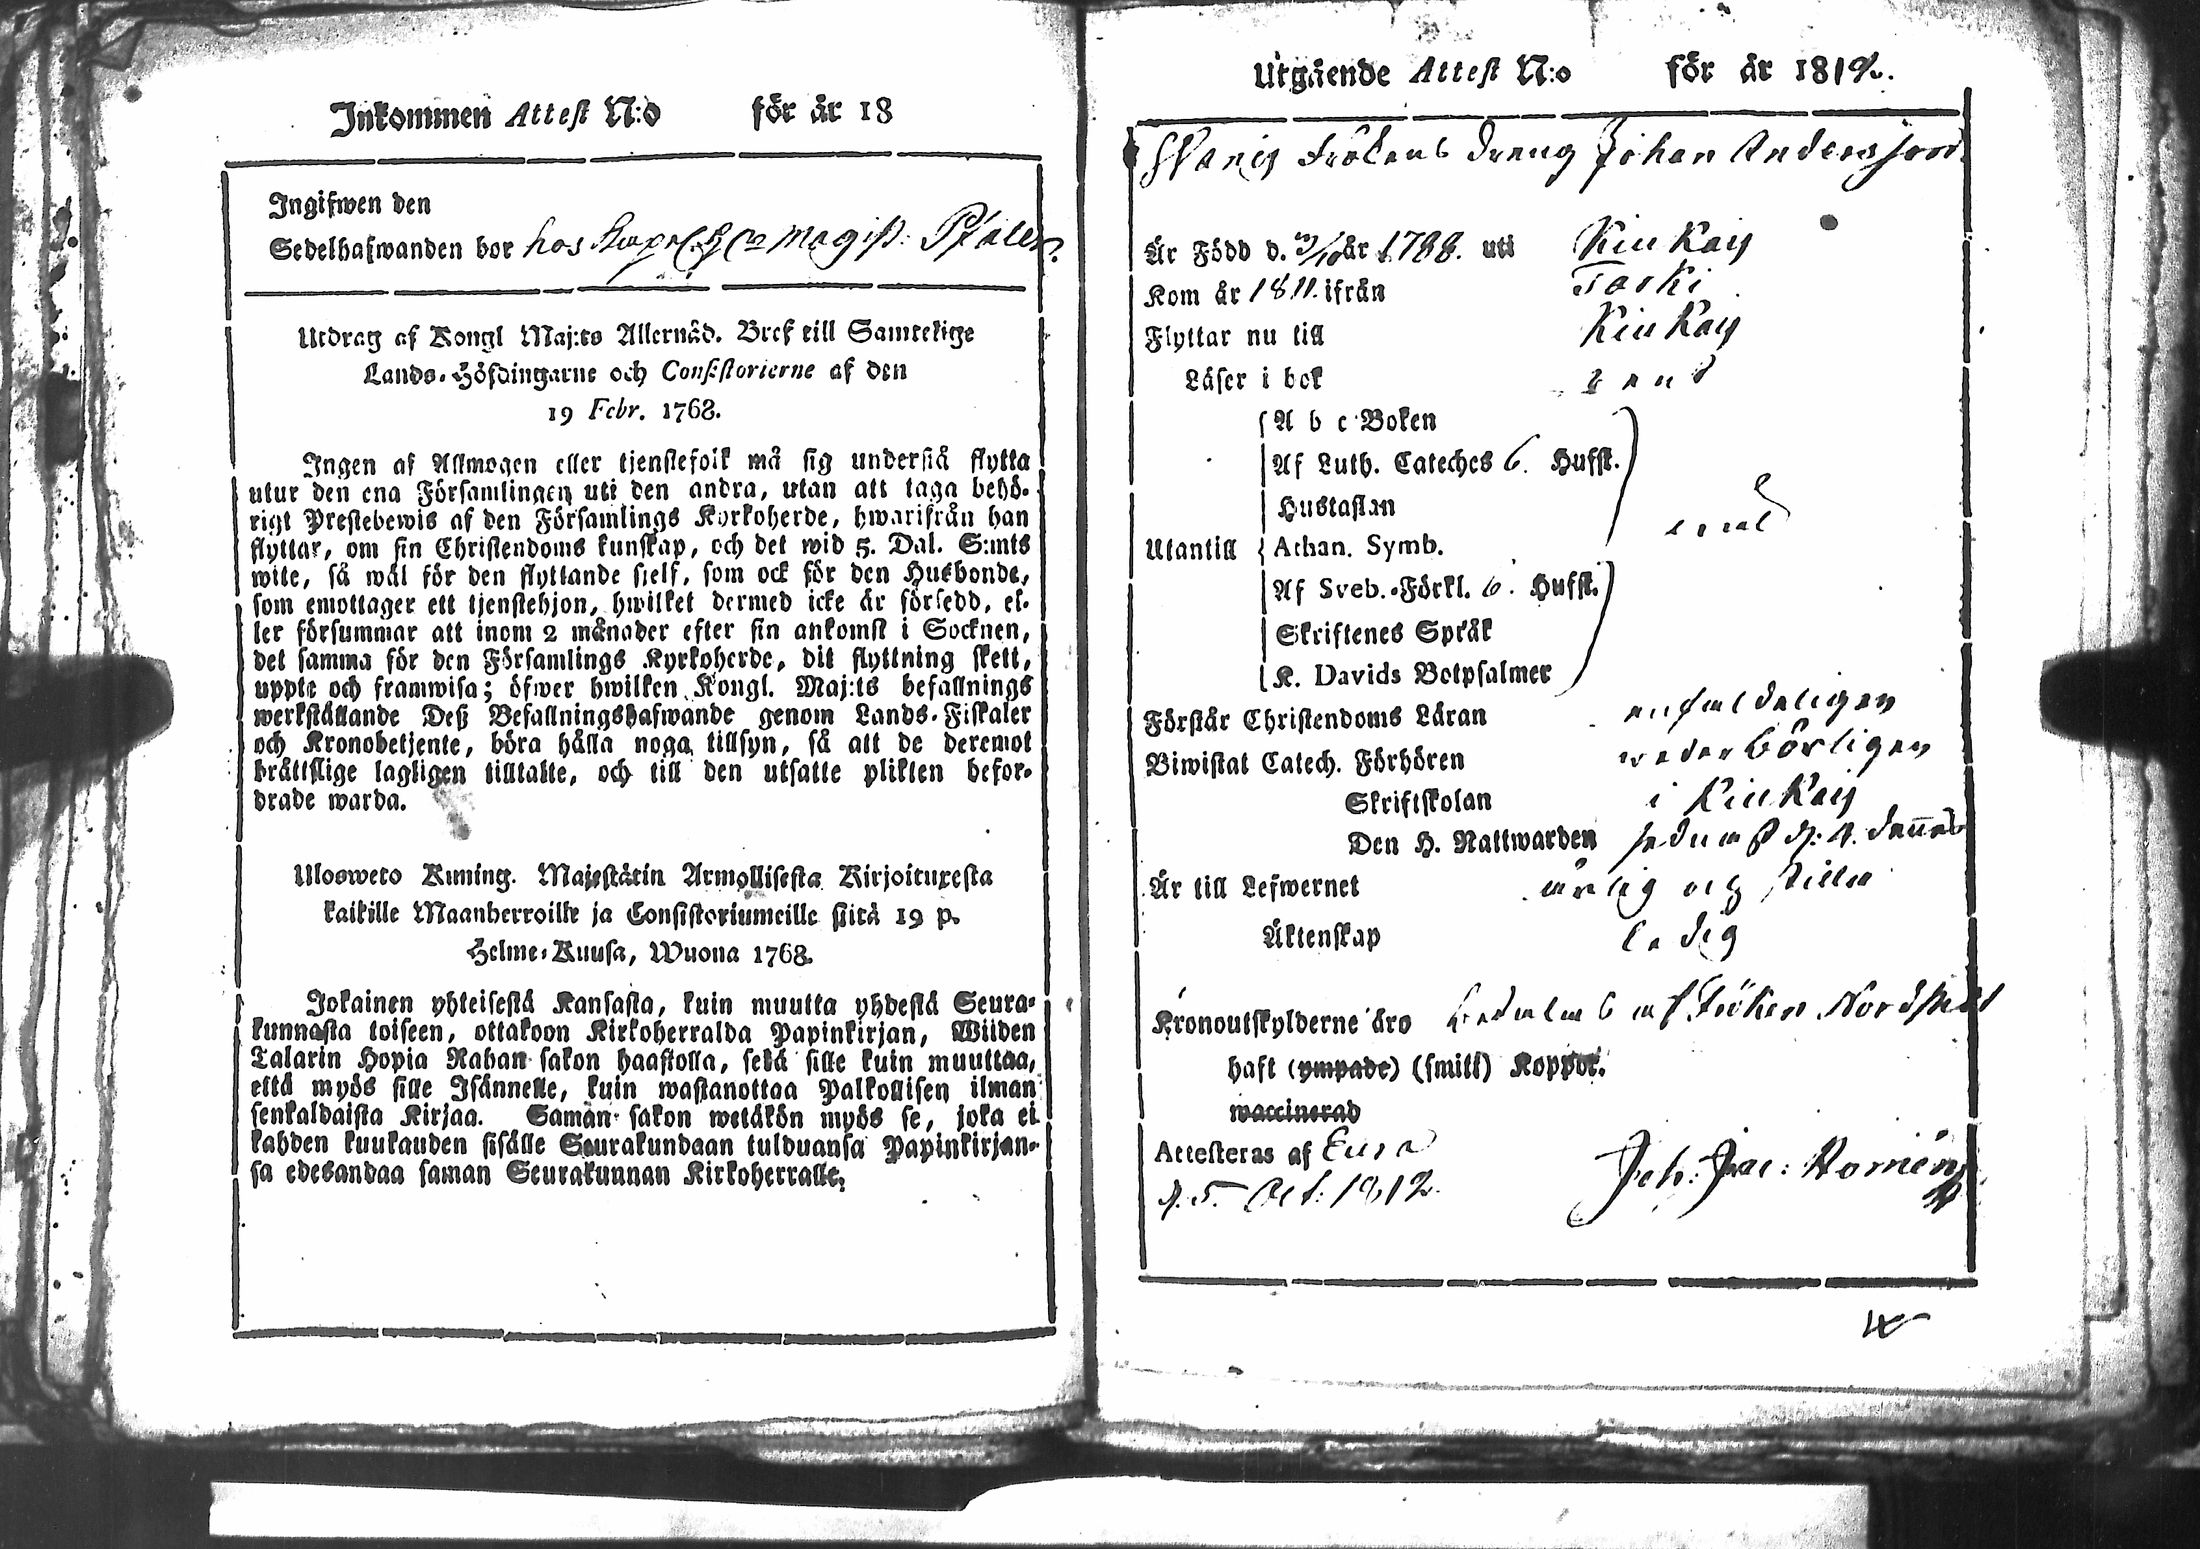 Inkommen Attest N:o för år 18
Ingifwen den
Sedelhafwanden bor hos Magist:
Utdrag af Kongl Maj:ts Allernåd. Bref till Samtelige
Lands-Höfdingarne och Consistorierne af den
19 Febr. 1768.
Ingen af Allmogen eller tjenstefolk må sig understå flytta
utur den ena Församlingen uti den andra, utan att taga behö-
rigt Prestebewis af den Församlings Kyrkoherde, hwarifrån han
flyttar, om sin Christendoms kunskap, och det wid 5. Dal. S:mts
wite, så wäl för den flyttande sielf, som ock för den Husbonde,
som emottager ett tjenstehjon, hwilket dermed icke är försedd, el-
ler försummar att inom 2 månader efter sin ankomst i Socknen,
det samma för den Församlings Kyrkoherde, dit flyttning skett,
uppte och framwisa; öfwer hwilken Kongl. Maj:ts befallnings
werkställande Deß Befallningshafwande genom Lands-Fiskaler
och Kronobetjente, böra hålla noga tillsyn, så att de deremot
bråttslige lagligen tilltalte, och till den utsatte plikten befor-
drade warda.
Uloswero Kuning. Majestätin Armollisesta Kirjoituxesta
kaikille Maanherroille ja Consistoriumeille siitä 19 p.
Helme-Kuusa, Wuona 1768.
Jokainen yhteisestä Kansasta, kuin muutta yhdestä Seura-
kunnasta toiseen, ottakoon Kirkoherralda Papinkirjan, Wiiden
Talarin Hopia Rahan sakon haastolla, sekä sille kuin muuttaa,
että myös sille Isännelle, kuin wastanottaa Palkollisen ilman
senkaldaista Kirjaa. Saman sakon wetäkön myös se, joka ei
kahden kuukauden sisälle Seurakundaan tulduansa Papinkirjan-
sa edesandaa saman Seurakunnan Kirkoherralle.
Utgående Attest N:o för år 1812.
Frökens dreng Johan Andersson
Är Född d. 3/10 år 1788. uti Kiukais
Kom år 1811. ifrån
Flyttar nu till Kiukais
Läser i bok
A b c Boken
Af Luth. Cateches 6. Hufst.
Hustaflan
Utantill Athan. Symb.
Af Sveb. Förkl. 6. Hufst.
Skriftenes Språk
K. Davids Botpsalmer
Förstår Christendoms Läran enfaldeligen
Biwistat Catech. Förhören wederbörligen
Skriftskolan i Kiukais
Den H. Nattwarden sednast d:
Är till Lefwernet ärlig och stilla
Äktenskap ledig
Kronoutskylderne äro betalas af Fröken
haft (ympade) (smitt) Koppor.
waccinerad
Attesteras af Eura
d. 5. Oct: 1812. Joh: Jac: